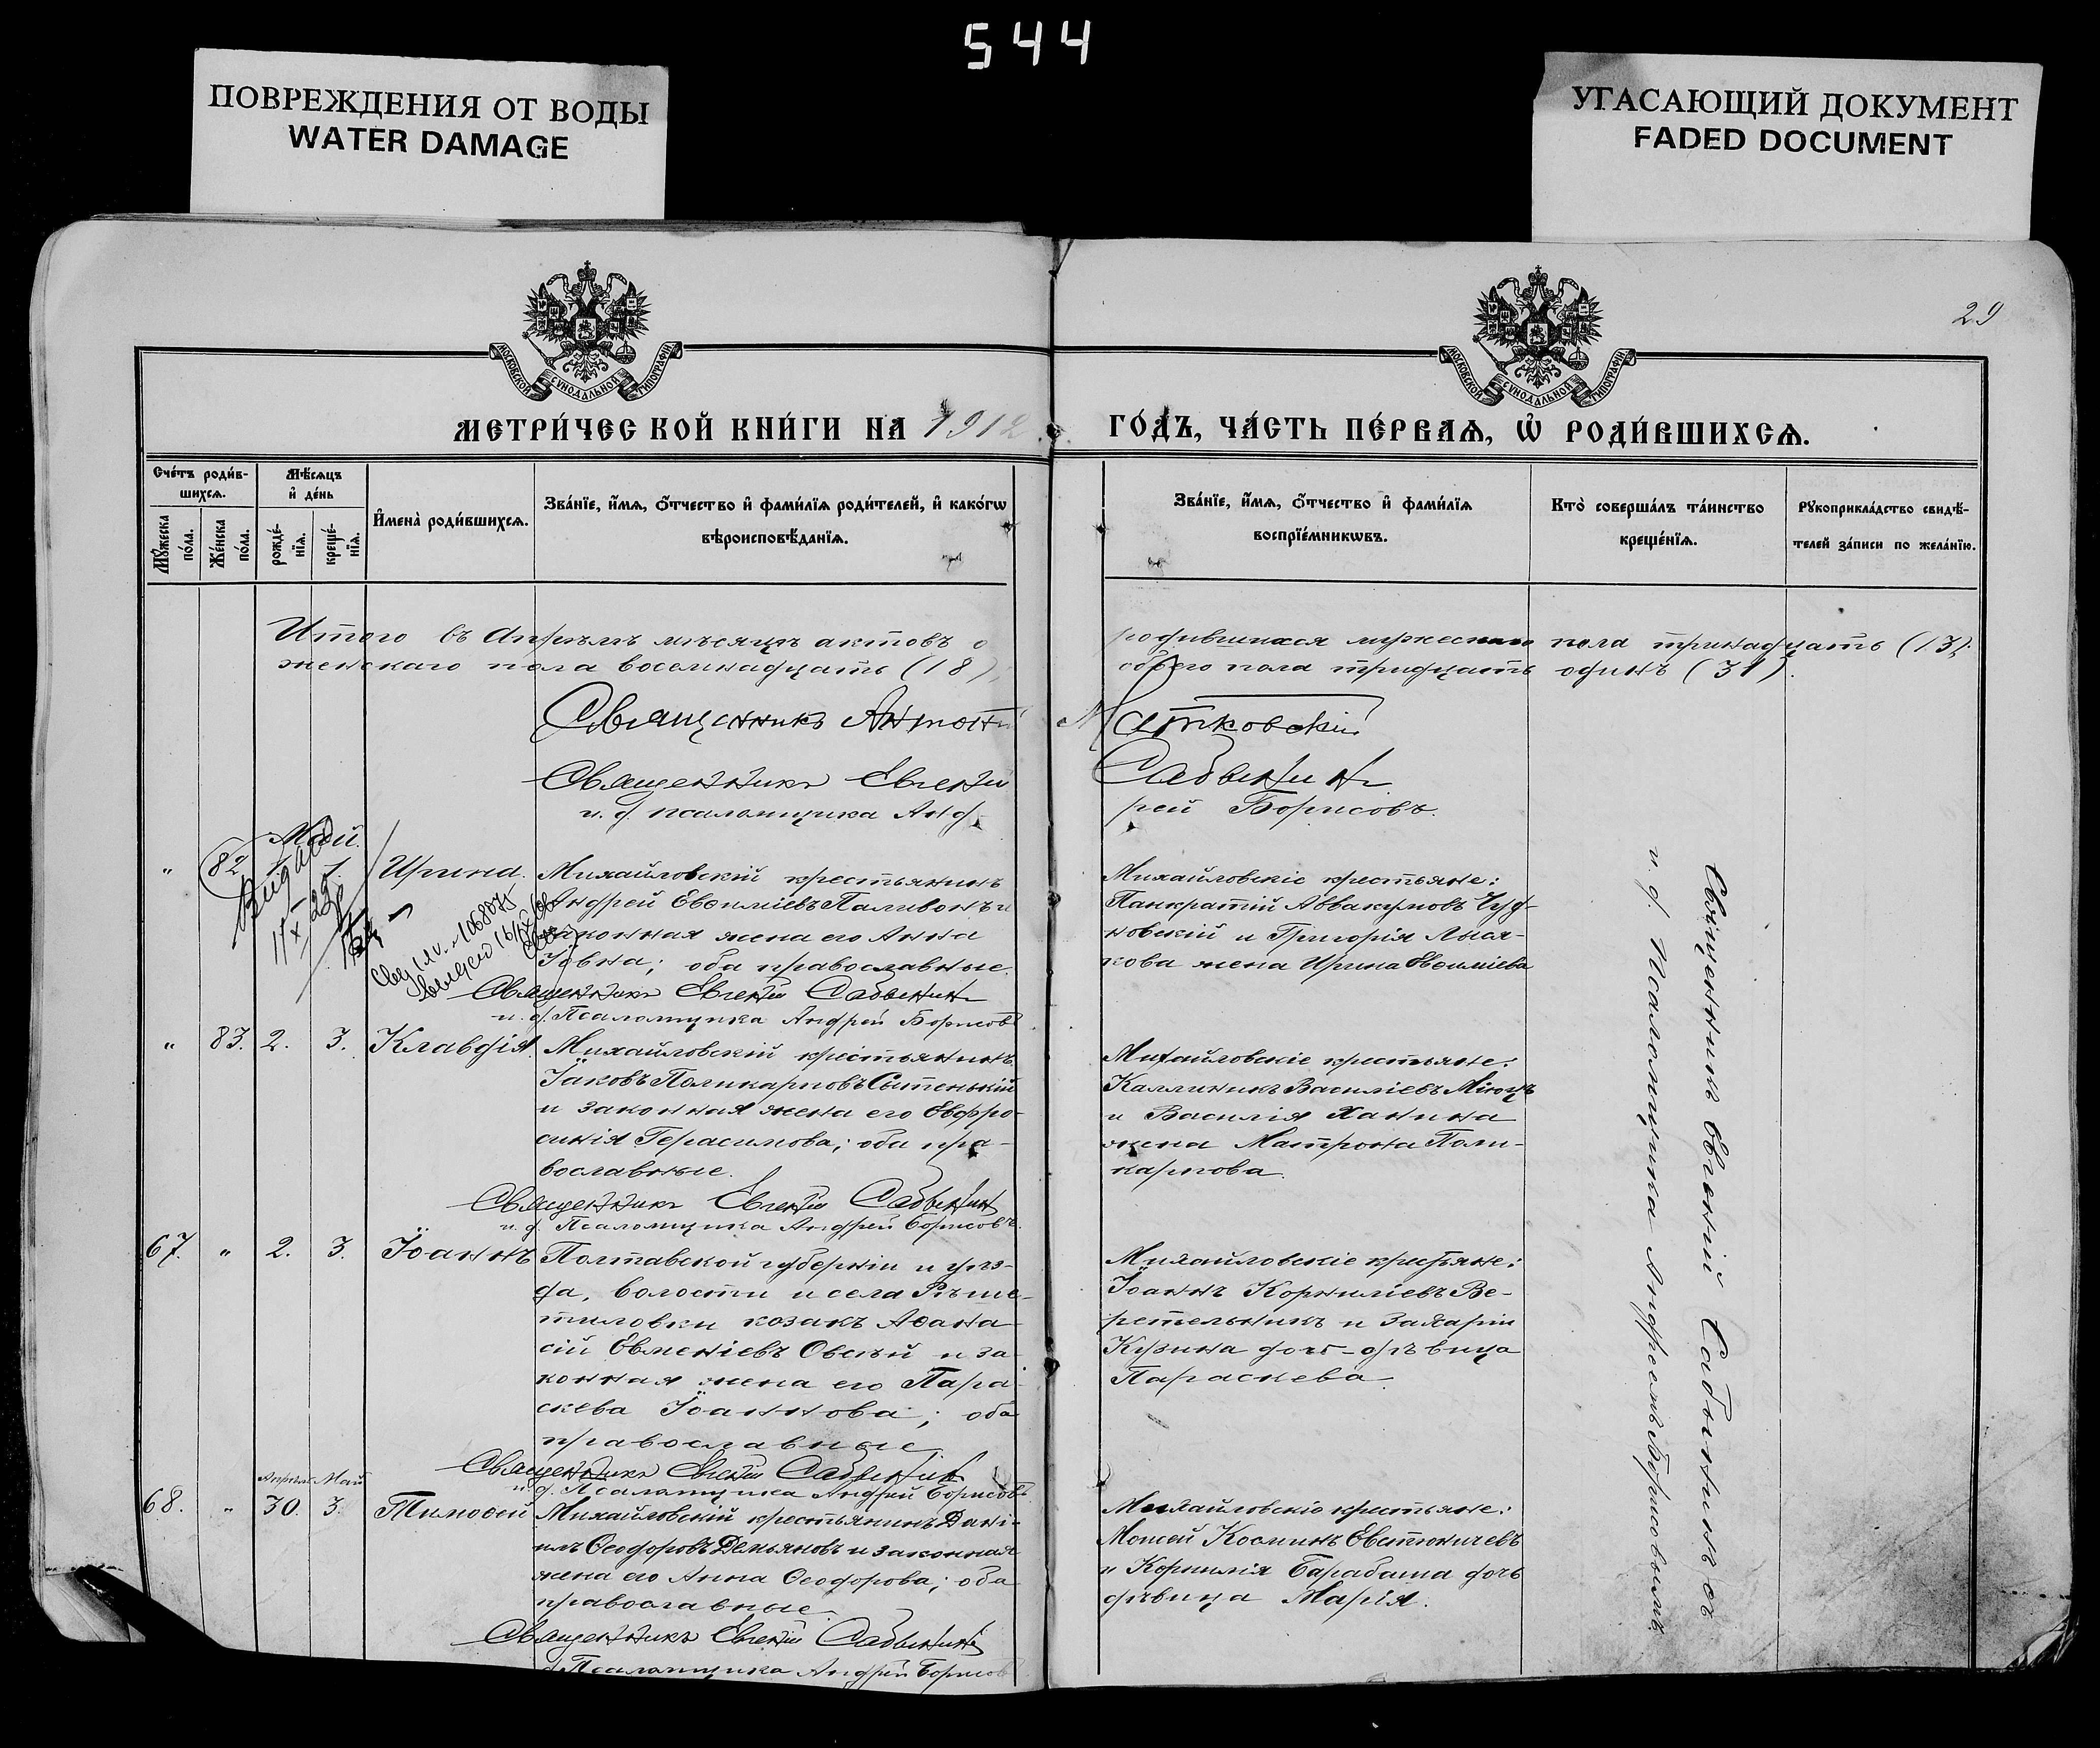 544
ПОВРЕЖДЕНИЯ ОТ ВОДЫ
WATER DAMAGE
УГАСАЮЩИЙ ДОКУМЕНТ
FADED DOCUMENT
29
МОСКОВСКОЙ СУНОДАЛЬНОЙ ТИПОГРАФІИ
МОСКОВСКОЙ СУНОДАЛЬНОЙ ТИПОГРАФІИ
МЕТРИ́ЧЕСКОЙ КНИ́ГИ НА 1912 ГО́ДЪ, ЧА́СТЬ ПЕ́РВАѦ, Ѡ҆ РОДИ́ВШИХСѦ.
Сче́тъ роди́в-
шихсѧ.
Мꙋ́жеска
по́ла.
Же́нска
по́ла.
Мѣ́сѧцъ
и҆ де́нь
рожде́-
нїѧ.
креще́-
нїѧ.
И҆мена̀ роди́вшихсѧ.
Зва́нїе, и҆́мѧ, ѻ҆́тчество и҆ фами́лїѧ роди́телей, и҆ како́гѡ
вѣроисповѣ́данїѧ.
Зва́нїе, и҆́мѧ, ѻ҆́тчество и҆ фами́лїѧ
воспрїе́мникѡвъ.
Кто̀ соверша́лъ та́инство
креще́нїѧ.
Рꙋкоприкла́дство свидѣ́-
телей за́писи по жела́нїю.
Итого въ Апрѣлѣ мѣсяцѣ актовъ о родившихся мужескаго пола тринадцать (13),
женскаго пола восемнадцать (18), обоего пола тридцать одинъ (31).
Священникъ Антоній
Священникъ Евгеній Савынинъ
и. д. псаломщика Андрей Борисовъ.
Май.
" 82 1. Ирина. Михайловскій крестьянинъ
Андрей Евѳиміевъ Паливонъ и
законная жена его Анна
Іовна; оба православные.
Священникъ Евгеній Савынинъ
и. д. Псаломщика Андрей Борисовъ
Михайловскіе крестьяне:
Панкратій Аввакумовъ Чуд-
новскій и Григорія Лыся-
кова жена Ирина Евѳиміева
" 83. 2. 3. Клавдія. Михайловскій крестьянинъ
Іаковъ Поликарповъ Сытенькій
и законная жена его Евфро-
синія Герасимова; оба пра-
вославные.
Священникъ Евгеній Савынинъ
и. д. Псаломщика Андрей Борисовъ.
Михайловскіе крестьяне:
Каллиникъ Василіевъ
и Василія Ханина
жена Матрона Поли-
карпова.
67. " 2. 3. Іоаннъ Полтавской губерніи и уѣз-
да, волости и села Рѣше-
тиловки козакъ Аѳана-
сій Евменіевъ Овсѣй и за-
конная жена его Пара-
скева Іоаннова; оба
православные
Священникъ Евгеній Савынинъ
и. д. Псаломщика Андрей Борисовъ
Михайловскіе крестьяне:
Іоаннъ Корниліевъ Ве-
ретельникъ и Захаріи
Кузина дочь-дѣвица
Параскева.
Апрѣль Май
68. " 30. 3. Тимоѳей Михайловскій крестьянинъ Дані-
илъ Ѳеодоровъ Демьяновъ и законная
жена его Анна Ѳеодорова; оба
православные.
Священникъ Евгеній Савынинъ
д. Псаломщика Андрей Борисовъ
Михайловскіе крестьяне:
Моисей Косминъ Евстюничевъ
и Корнилія Барабаша дочь
дѣвица Марія.
Священникъ Евгеній Савынинъ съ
и. д. Псаломщика Андреемъ Борисовымъ